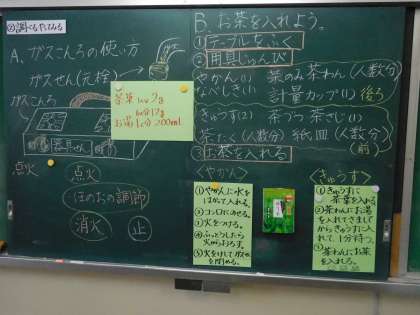 ②調べる・やってみる
A、ガスこんろの使い方
ガスせん(元栓)
ガスこんろ
器具せん
点火
点火
ほのおの調節
消火
止
茶葉
お湯
200ml
B、お茶を入れよう。
①テーブルをふく
②用具じゅんび
やかん(1) 葉のみ茶わん(人数分)
なべしき(1) 計量カップ(1) 後ろ
きゅうす(2) 茶づつ 茶さじ(1)
茶たく(人数分) 紙皿(人数分)
(前)
③お茶を入れる
〈やかん〉
①やかんに水をはかって入れる。
②コンロにのせる。
③火をつける。
④ふっとうしたら火からおろす。
〈きゅうす〉
①きゅうすに茶葉を入れる。
②茶わんにお湯を入れてさましてからきゅうすに入れて、1分待つ。
③茶わんにお茶を入れる。